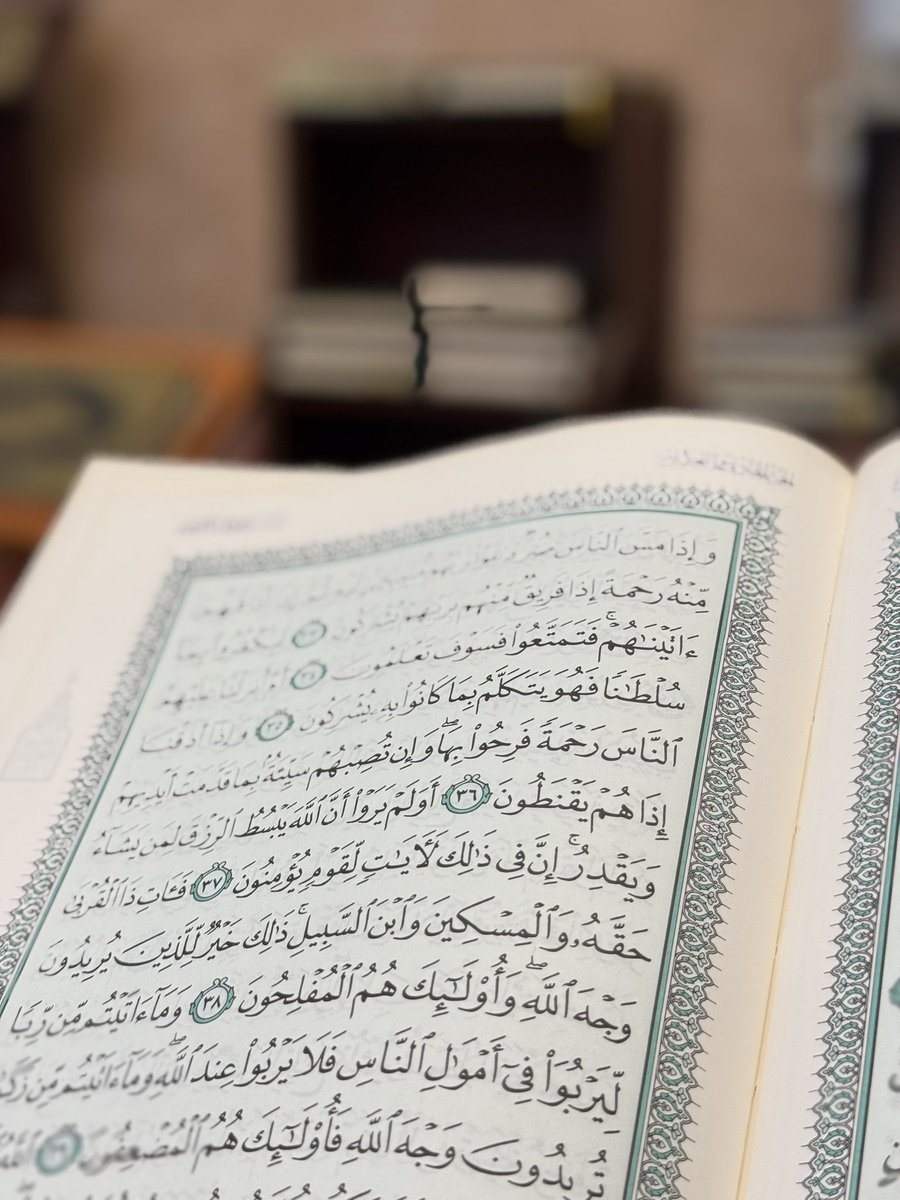 وَإِذَا مَسَّ ٱلنَّاسَ ضُرٌّ دَعَوْا۟ رَبَّهُم
مِّنْهُ رَحْمَةً إِذَا فَرِيقٌ مِّنْهُم بِرَبِّهِمْ يُشْرِكُونَ ٣٣ لِيَكْفُرُوا۟ بِمَآ
ءَاتَيْنَٰهُمْ ۚ فَتَمَتَّعُوا۟ فَسَوْفَ تَعْلَمُونَ ٣٤ أَمْ أَنزَلْنَا عَلَيْهِمْ
سُلْطَٰنًا فَهُوَ يَتَكَلَّمُ بِمَا كَانُوا۟ بِهِۦ يُشْرِكُونَ ٣٥ وَإِذَآ أَذَقْنَا
ٱلنَّاسَ رَحْمَةً فَرِحُوا۟ بِهَا ۖ وَإِن تُصِبْهُمْ سَيِّئَةٌۢ بِمَا قَدَّمَتْ أَيْدِيهِمْ
إِذَا هُمْ يَقْنَطُونَ ٣٦ أَوَلَمْ يَرَوْا۟ أَنَّ ٱللَّهَ يَبْسُطُ ٱلرِّزْقَ لِمَن يَشَآءُ
وَيَقْدِرُ ۚ إِنَّ فِى ذَٰلِكَ لَءَايَٰتٍ لِّقَوْمٍ يُؤْمِنُونَ ٣٧ فَـَٔاتِ ذَا ٱلْقُرْبَىٰ
حَقَّهُۥ وَٱلْمِسْكِينَ وَٱبْنَ ٱلسَّبِيلِ ۚ ذَٰلِكَ خَيْرٌ لِّلَّذِينَ يُرِيدُونَ
وَجْهَ ٱللَّهِ ۖ وَأُو۟لَٰٓئِكَ هُمُ ٱلْمُفْلِحُونَ ٣٨ وَمَآ ءَاتَيْتُم مِّن رِّبًا
لِّيَرْبُوَا۟ فِىٓ أَمْوَٰلِ ٱلنَّاسِ فَلَا يَرْبُوا۟ عِندَ ٱللَّهِ ۖ وَمَآ ءَاتَيْتُم مِّن
تُرِيدُونَ وَجْهَ ٱللَّهِ فَأُو۟لَٰٓئِكَ هُمُ ٱلْمُضْعِفُونَ ٣٩ ٱللَّهُ